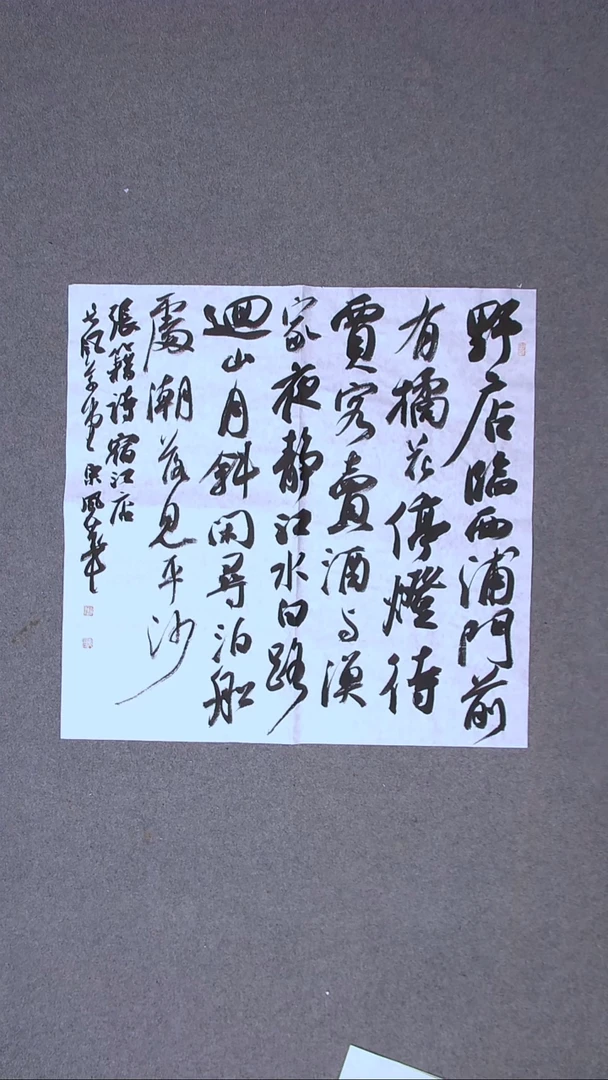 野店臨西浦門前
有橘花停燈待
賈客賣酒与漁
家夜静江水白路
迴山月斜閑尋泊船
處潮落見平沙
張籍詩宿江店